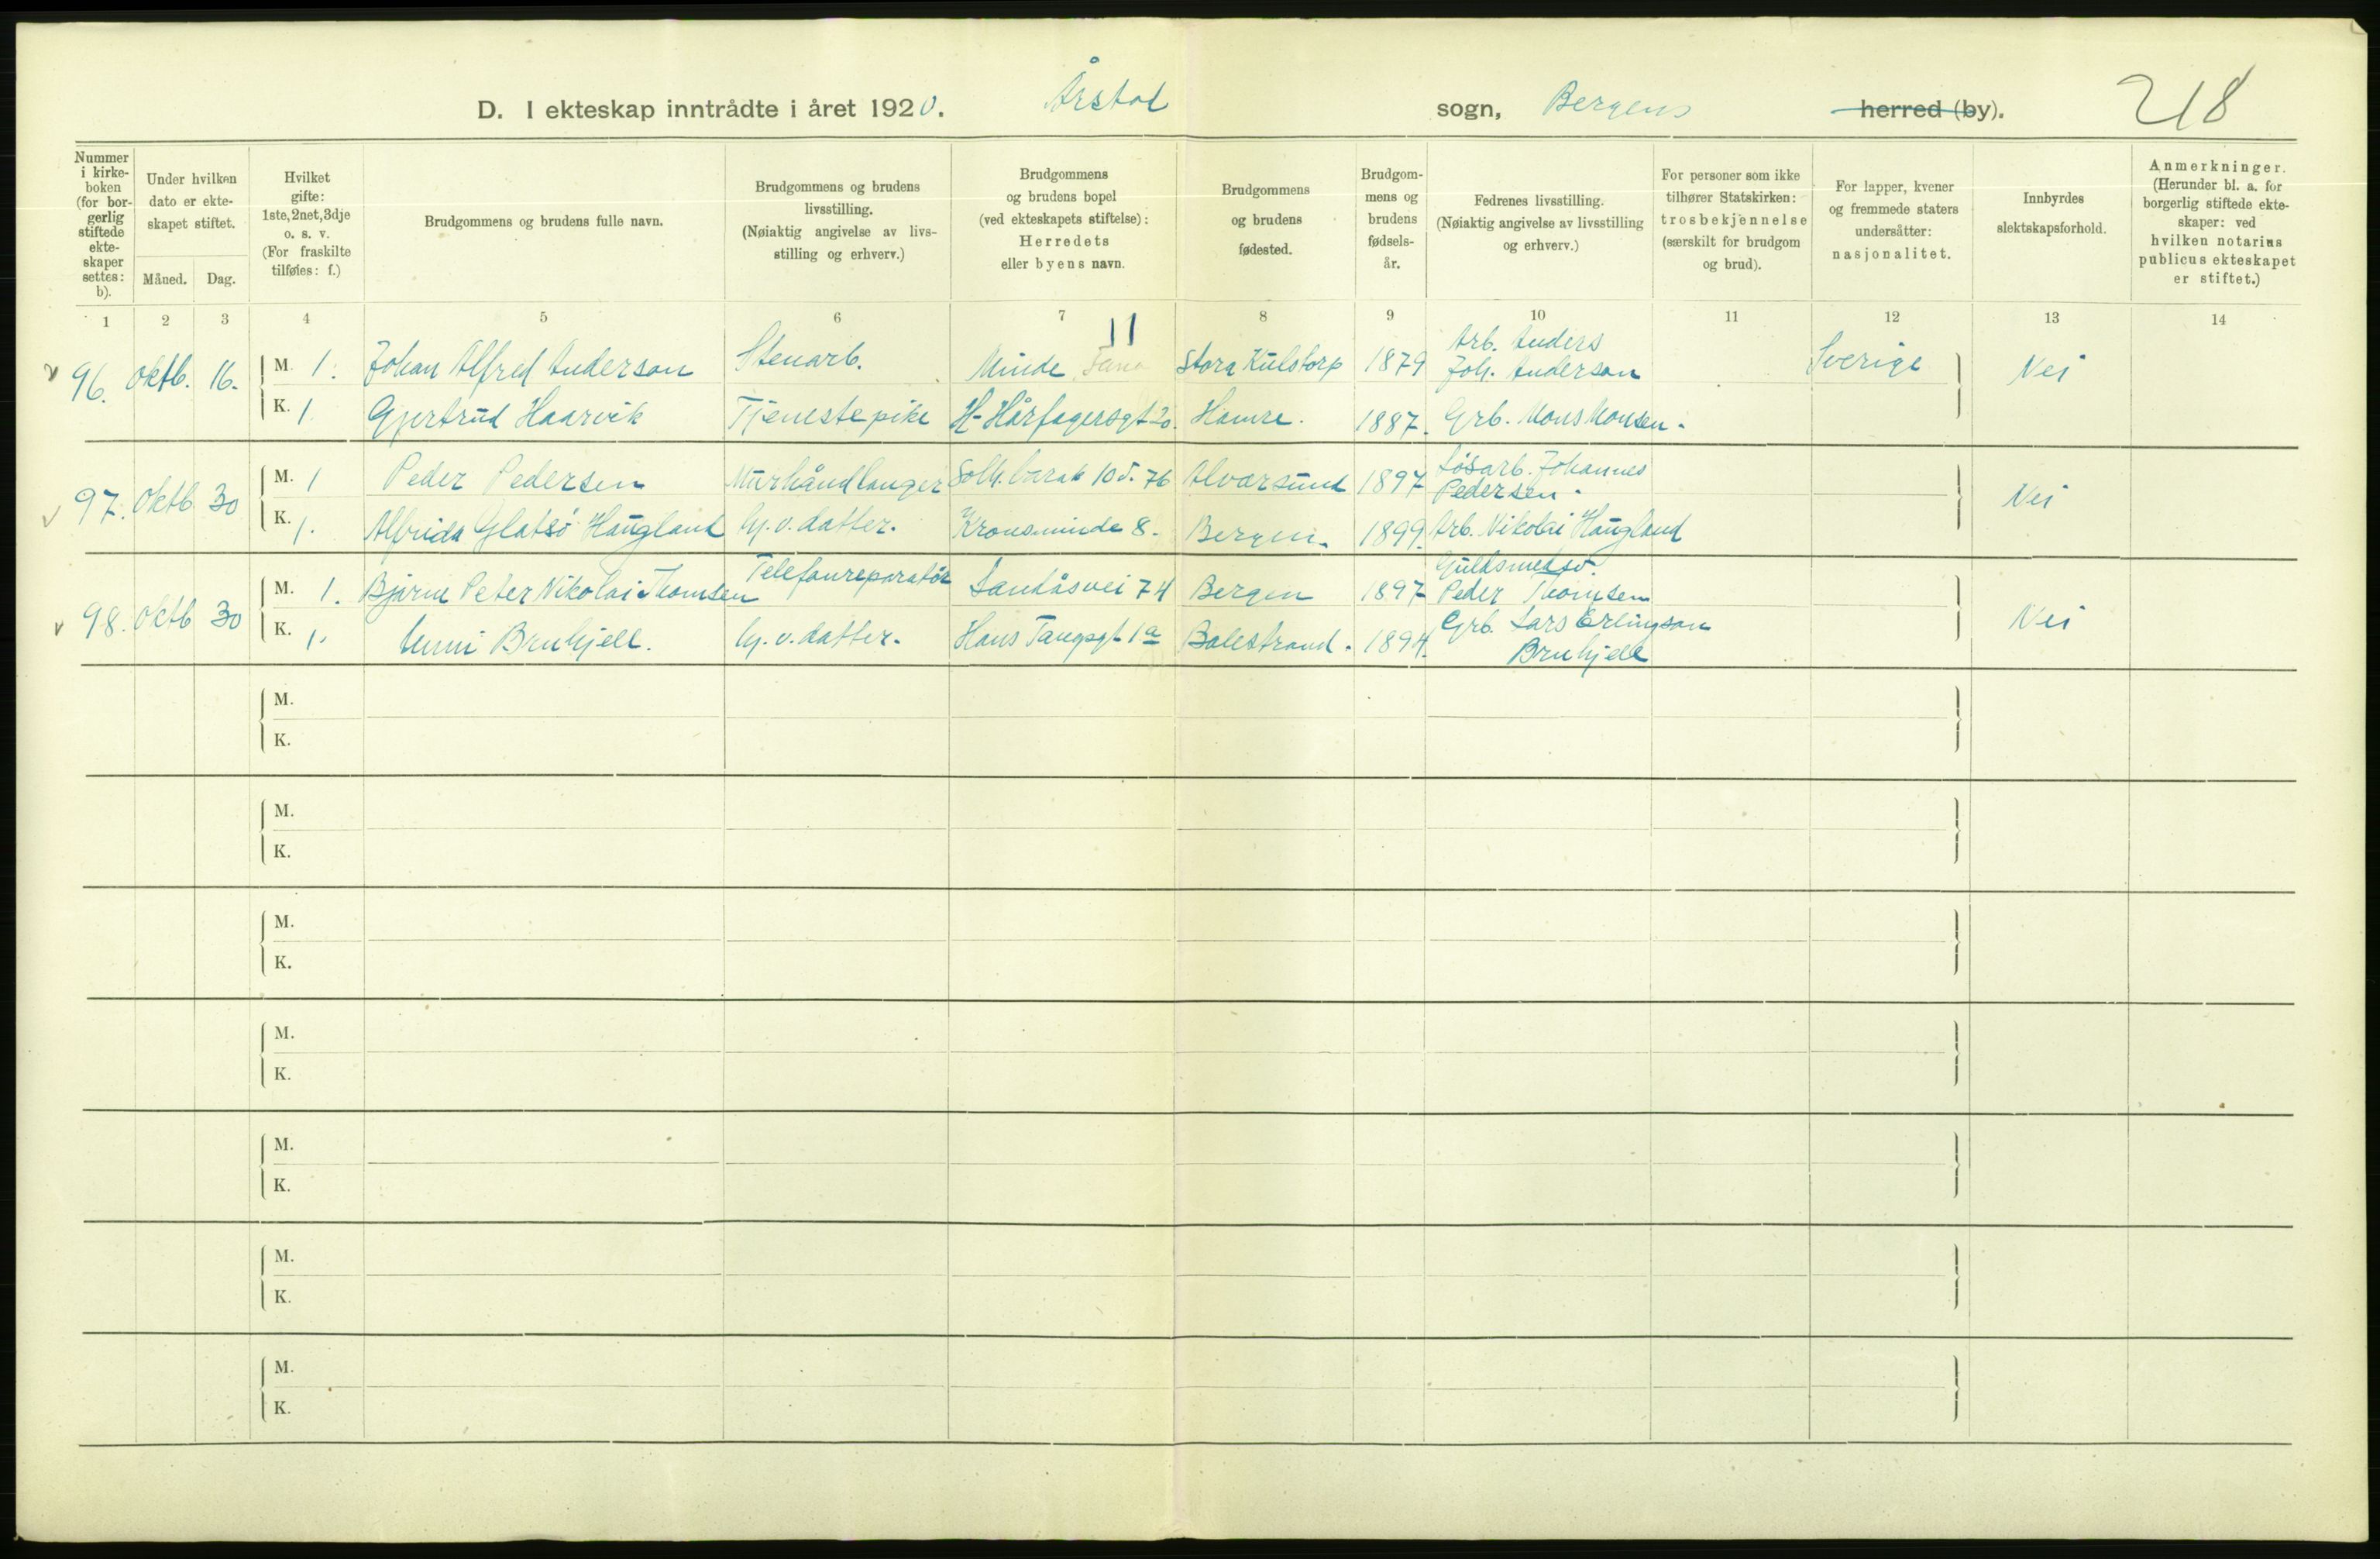 D. I ekteskap inntrådte i året 1920. Årstad sogn, Bergens herred (by). 218
Nummer i kirkeboken (for borgerlig stiftede ekteskaper settes: b).
Under hvilken dato er ekteskapet stiftet.
Måned. Dag.
Hvilket gifte: 1ste, 2net, 3dje o. s. v. (For fraskilte tilføies: f.)
Brudgommens og brudens fulle navn.
Brudgommens og brudens livsstilling. (Nøiaktig angivelse av livsstilling og erhverv.)
Brudgommens og brudens bopel (ved ekteskapets stiftelse): Herredets eller byens navn.
Brudgommens og brudens fødested.
Brudgommens og brudens fødselsår.
Fedrenes livsstilling. (Nøiaktig angivelse av livsstilling og erhverv.)
For personer som ikke tilhører Statskirken: trosbekjennelse (særskilt for brudgom og brud).
For lapper, kvener og fremmede staters undersåtter: nasjonalitet.
Innbyrdes slektskapsforhold.
Anmerkninger. (Herunder bl. a. for borgerlig stiftede ekteskaper: ved hvilken notarius publicus ekteskapet er stiftet.)
1 2 3 4 5 6 7 8 9 10 11 12 13 14
11
v 96. oktb. 16. M. 1. Johan Alfred Anderson Stenarb. Minde Fana Stora Kulstorp 1879 Arb. Anders Joh. Anderson Sverige Nei
K. 1 Gjertrud Haarvik Tjenestepike H. Hårfagersgt 20. Hamre. 1887. Grb. Mons Monsen.
v 97. Oktb 30 M. 1 Peder Pedersen Murhåndlanger Solh. barak 10 v. 76 Alvorsund 1897 Løsarb. Johannes Pedersen. Nei
K. 1. Alfrida Glatsø Haugland hj. v. datter. Kronsminde 8. Bergen. 1899. Arb. Nikolai Haugland
v 98. Oktb 30 M. 1. Bjarne Peter Nikolai Thomsen Telefonreparatør Landåsvei 74 Bergen 1897 Guldsmedsv. Peder Thomsen Nei
K. 1. Unni Bruhjell. hj. v. datter. Hans Tangsgt 1a Balestrand. 1894. Grb. Lars Erlingson Bruhjell
M.
K.
M.
K.
M.
K.
M.
K.
M.
K.
M.
K.
M.
K.